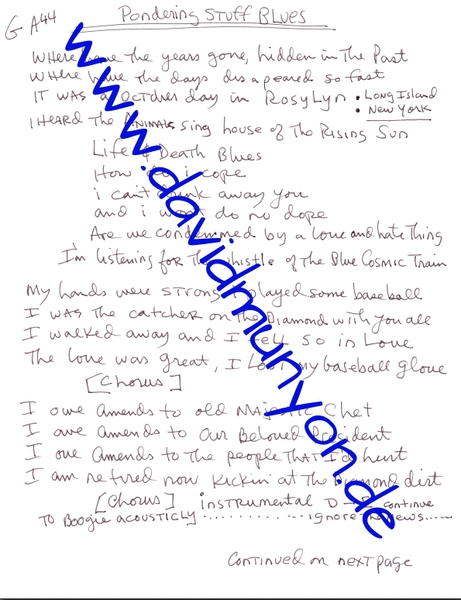 Pondering Stuff Blues
G A44
Where have the years gone, hidden in The Past
Where have the days disapeared so fast
IT was a October day in Rosylyn • Long Island
• New York
I Heard The Animals sing house of The Rising Sun
Life & Death Blues
How do i cope
i can't drink away you
and i won't do no dope
Are we condemned by a Love and hate Thing
I'm listening for The whistle of The Blue Cosmic Train
My hands were strong I played some baseball
I was The catcher on The Diamond with you all
I walked away and I fell so in Love
The Love was great, I Lost my baseball glove
[Chorus]
I owe amends to old Majestic Chet
I owe amends to Our Beloved President
I owe amends to The people THAT I'd hurt
I am retired now Kickin' at The Diamond dirt
[Chorus] instrumental D - continue
To Boogie acousticly .......... ignore The News.....
Continued on next page
www.davidmunyon.de